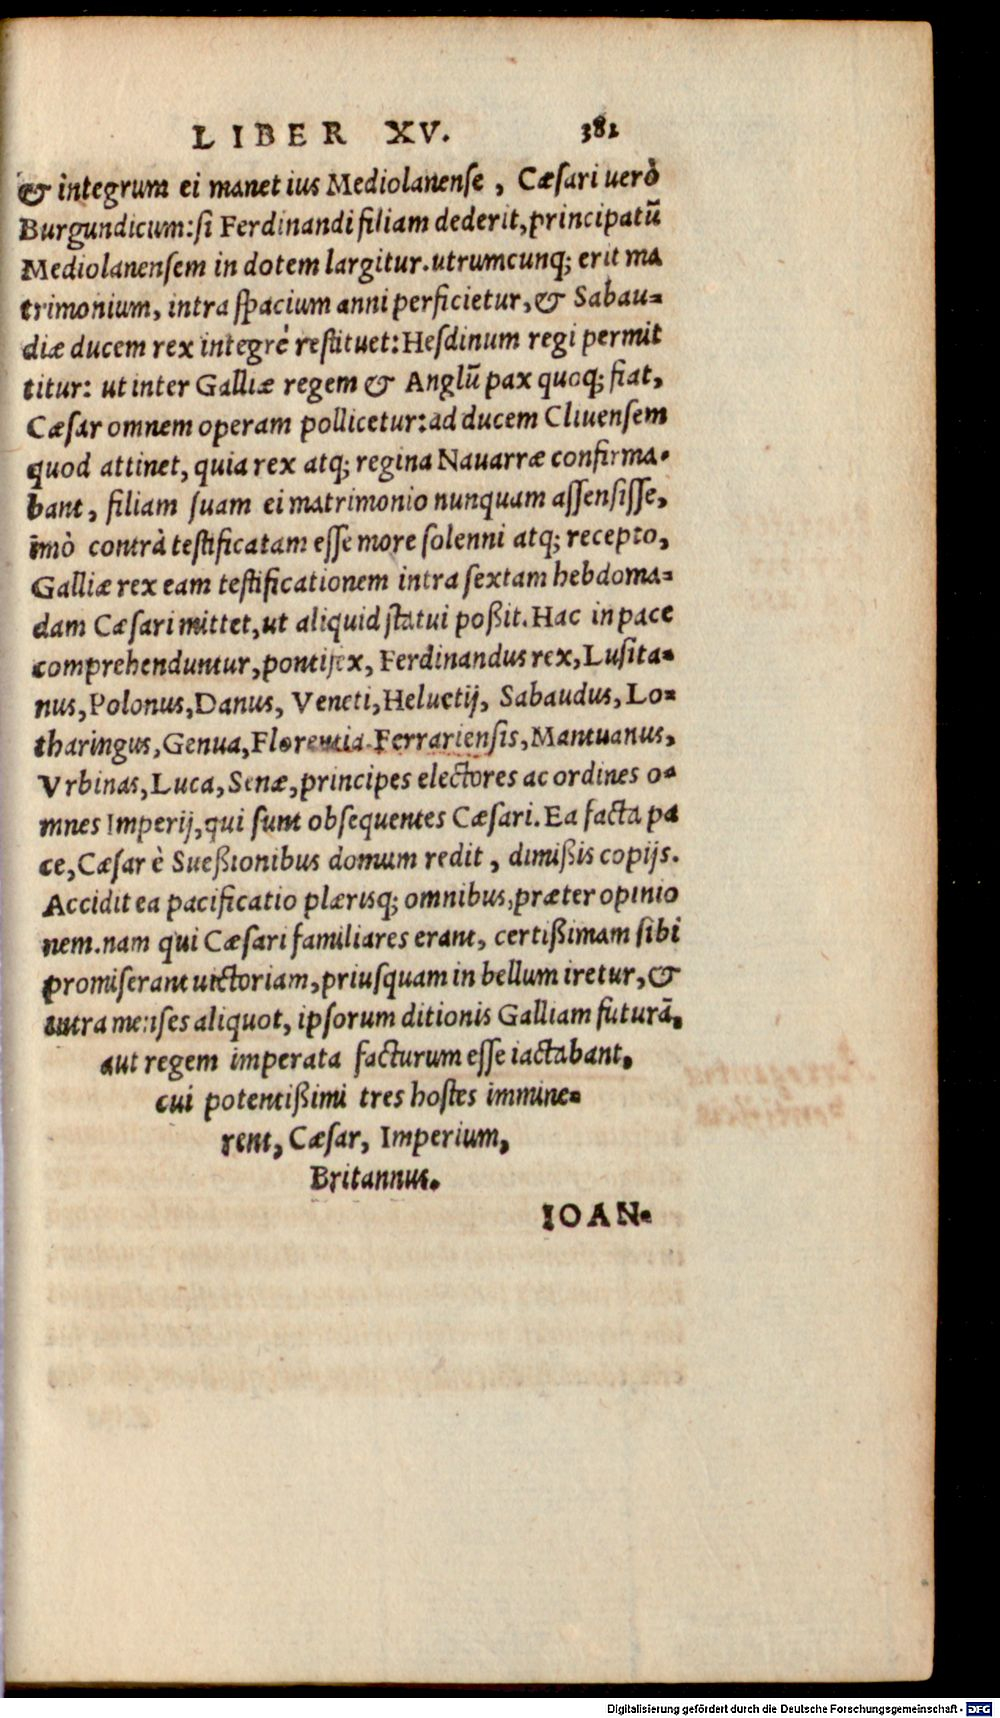 LIBER XV. 381
& integrum ei manet ius Mediolanense, Cæsari uerò
Burgundicum: si Ferdinandi filiam dederit, principatũ
Mediolanensem in dotem largitur. utrumcunq; erit ma
trimonium, intra spacium anni perficietur, & Sabau-
diæ ducem rex integrè restituet: Hesdinum regi permit
titur: ut inter Galliæ regem & Anglũ pax quoq; fiat,
Cæsar omnem operam pollicetur: ad ducem Cliuensem
quod attinet, quia rex atq; regina Nauarræ confirma-
bant, filiam suam ei matrimonio nunquam assensisse,
imò contrà testificatam esse more solenni atq; recepto,
Galliæ rex eam testificationem intra sextam hebdoma-
dam Cæsari mittet, ut aliquid statui poßit. Hac in pace
comprehenduntur, pontifex, Ferdinandus rex, Lusita-
nus, Polonus, Danus, Veneti, Heluetij, Sabaudus, Lo-
tharingus, Genua, Florentia. Ferrariensis, Mantuanus,
Vrbinas, Luca, Senæ, principes electores ac ordines o-
mnes Imperij, qui sunt obsequentes Cæsari. Ea facta pa
ce, Cæsar è Sueßionibus domum redit, dimißis copijs.
Accidit ea pacificatio plærisq; omnibus, præter opinio
nem. nam qui Cæsari familiares erant, certißimam sibi
promiserant uictoriam, priusquam in bellum iretur, &
intra menses aliquot, ipsorum ditionis Galliam futurã,
aut regem imperata facturum esse iactabant,
cui potentißimi tres hostes immine-
rent, Cæsar, Imperium,
Britannus.
IOAN-
Digitalisierung gefördert durch die Deutsche Forschungsgemeinschaft - DFG